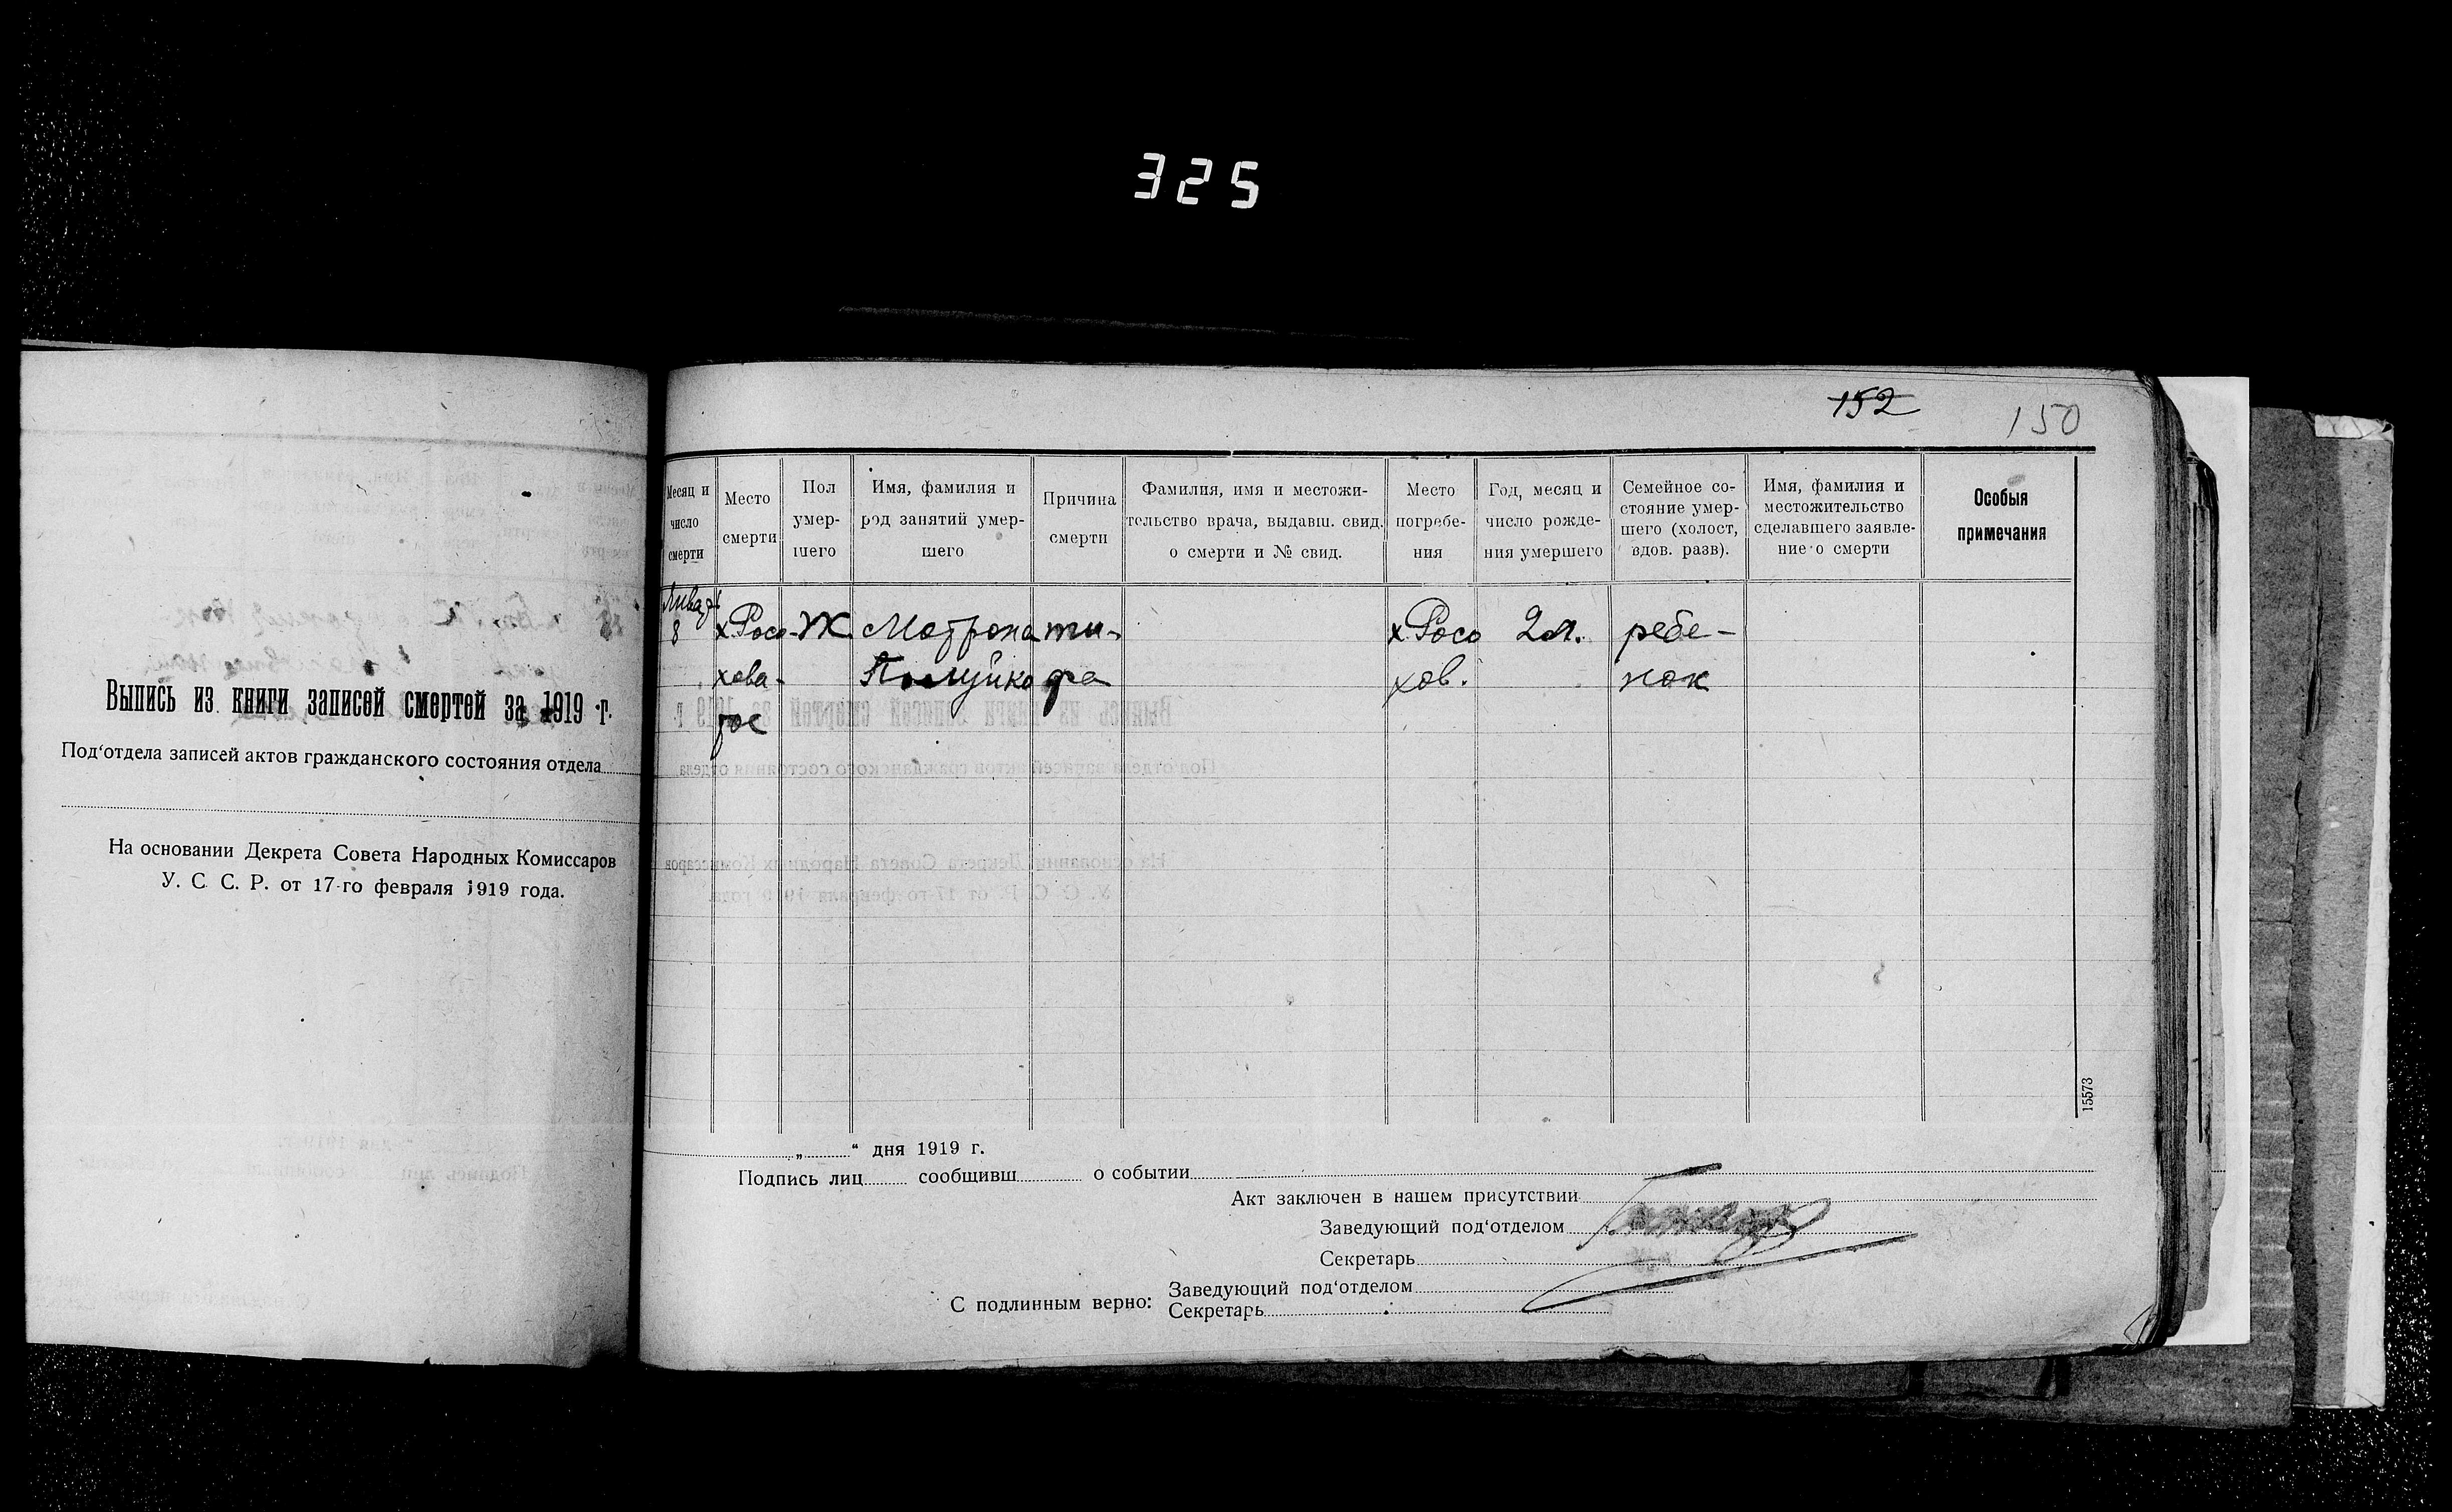 325
152
150
Выпись из книги записей смертей за 1919 г.
Под'отдела записей актов гражданского состояния отдела
На основании Декрета Совета Народных Комиссаров
У. С. С. Р. от 17-го февраля 1919 года.
Месяц и число смерти
Место смерти
Пол умер-
шего
Имя, фамилия и
род занятий умер-
шего
Причина
смерти
Фамилия, имя и местожи-
тельство врача, выдавш. свид.
о смерти и № свид.
Место
погребе-
ния
Год, месяц и
число рожде-
ния умершего
Семейное со-
стояние умер-
шего (холост,
вдов. разв).
Имя, фамилия и
местожительство
сделавшего заявле-
ние о смерти
Особыя
примечания
8 х. Росо- Ж Матрона ти- х. Росо 2 л. ребе-
хова- фа хов. нок
тое
15573
„ “ дня 1919 г.
Подпись лиц сообщивш о событии
Акт заключен в нашем присутствии
Заведующий под'отделом
Секретарь
С подлинным верно: Заведующий под'отделом
Секретарь